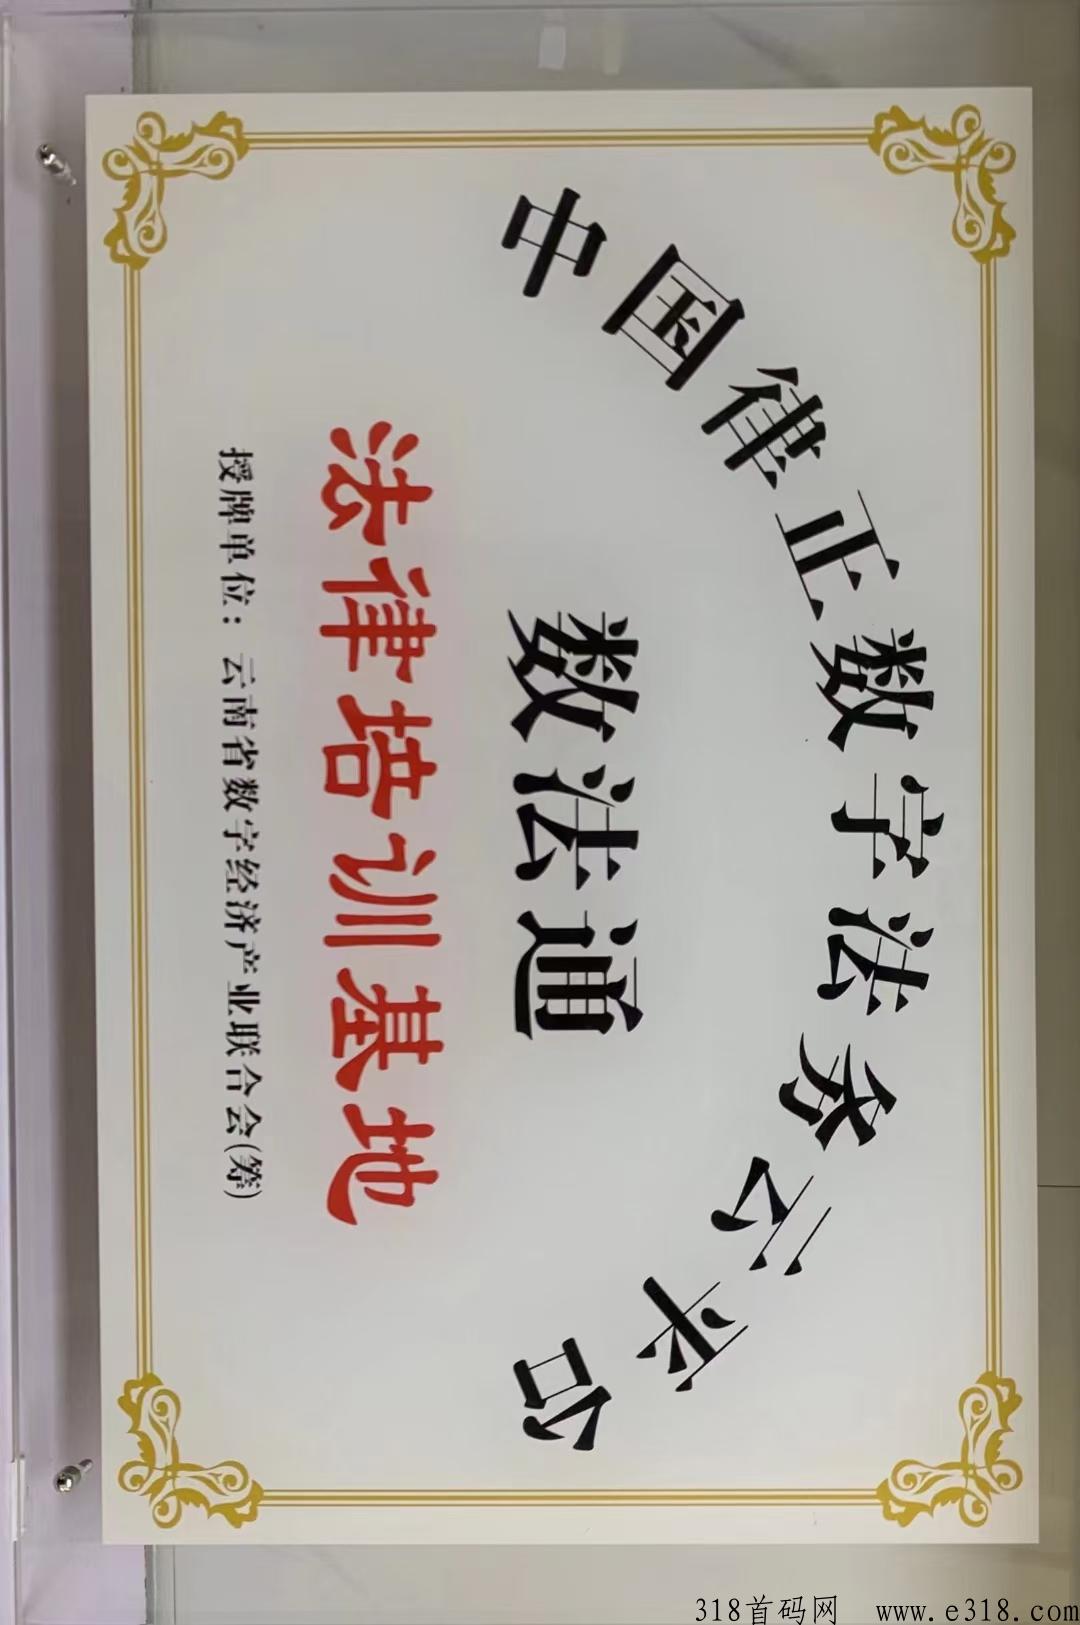 中国律正数字法务云平台
数法通
法律培训基地
授牌单位：云南省数字经济产业联合会(筹)
318首码网 www.e318.com